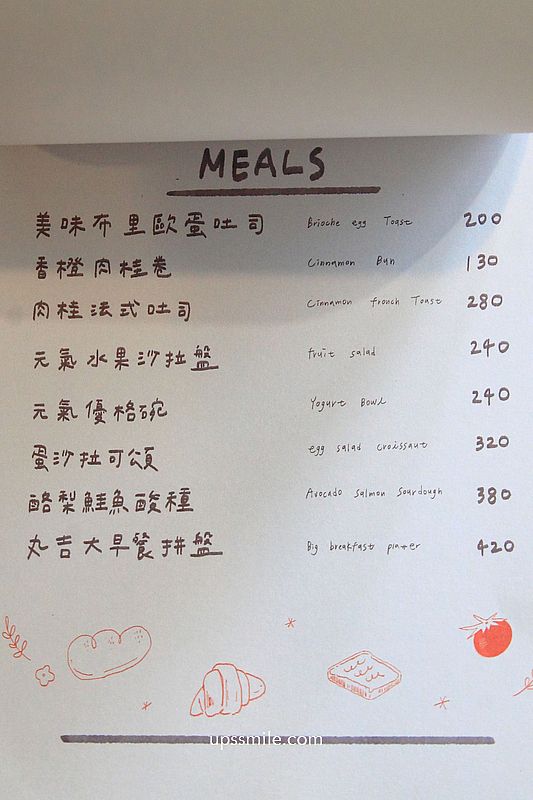 MEALS
美味布里歐蛋吐司 Brioche egg Toast 200
香橙肉桂卷 Cinnamon Bun 130
肉桂法式吐司 Cinnamon french Toast 280
元氣水果沙拉盤 fruit salad 240
元氣優格碗 Yogurt Bowl 240
蛋沙拉可頌 egg salad croissant 320
酪梨鮭魚酸種 Avocado Salmon Sourdough 380
丸吉大早餐拼盤 Big breakfast platter 420
upssmile.com